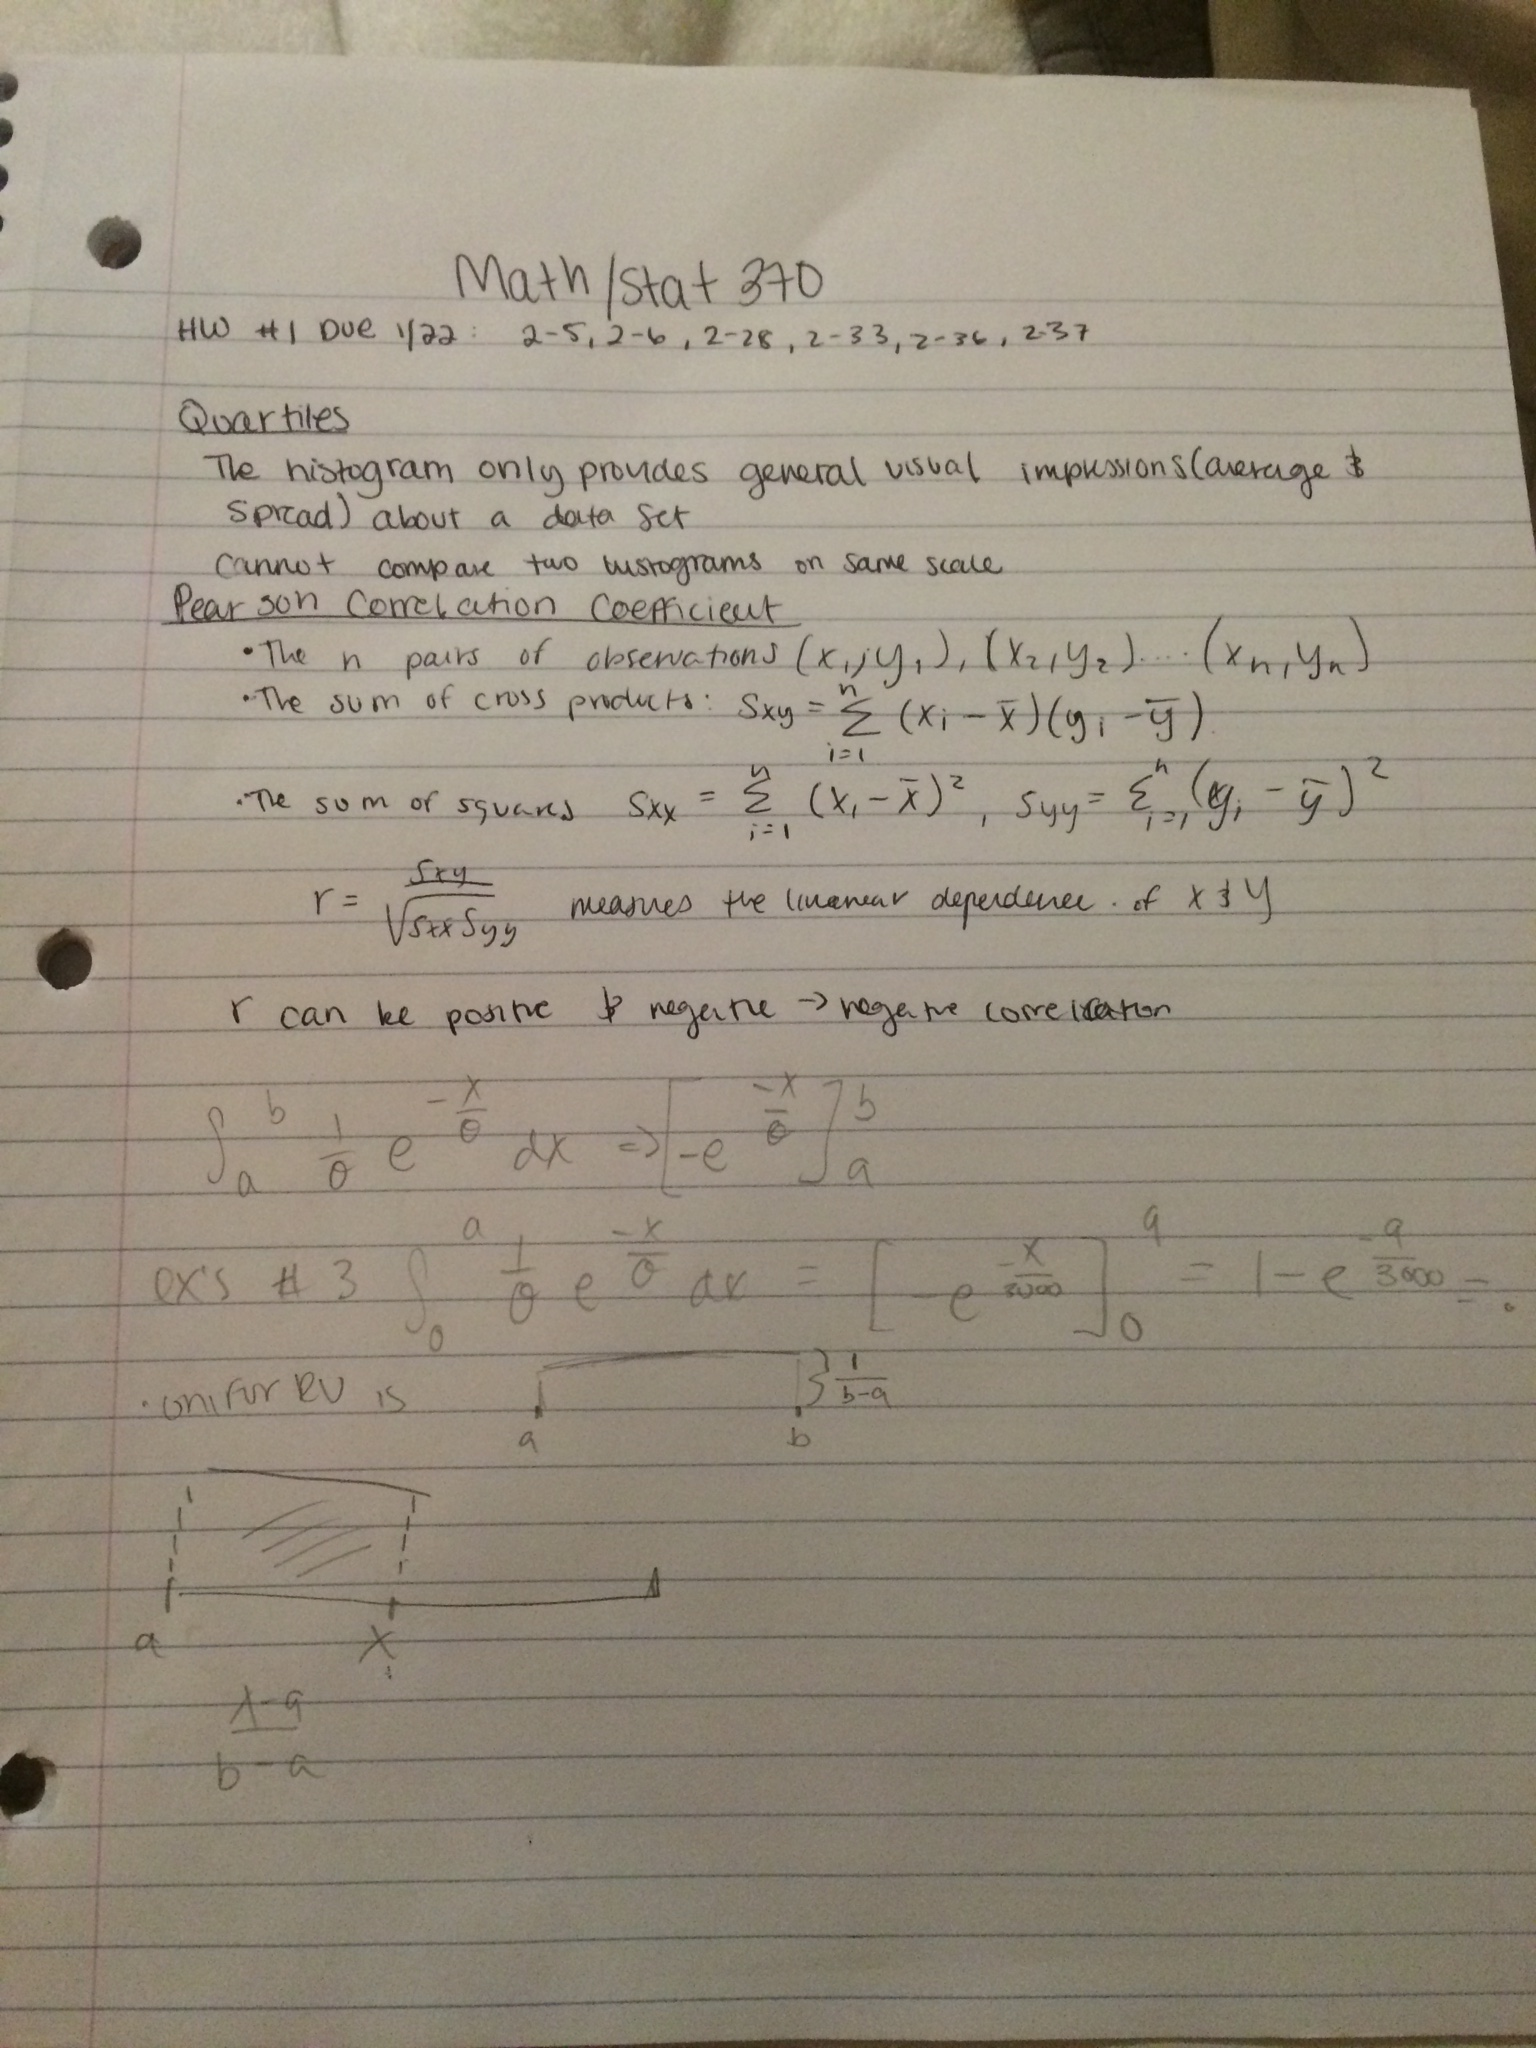 Math/Stat 370
HW #1 Due 1/22: 2-5, 2-6, 2-28, 2-33, 2-36, 2-37
Quartiles
The histogram only provides general visual impressions (average &
spread) about a data set
cannot compare two histograms on same scale
Pearson Correlation Coefficient
• The n pairs of observations (x₁, y₁), (x₂, y₂) .... (xₙ, yₙ)
• The sum of cross products: Sxy = Σ_{i=1}^{n} (xᵢ - x̄)(yᵢ - ȳ)
• The sum of squares Sxx = Σ_{i=1}^{n} (xᵢ - x̄)², Syy = Σ_{i=1}^{n} (yᵢ - ȳ)²
r = Sxy / √(Sxx Syy) measures the linear dependence of x & y
r can be positive & negative → negative correlation
∫_a^b 1/θ e^{-x/θ} dx => [-e^{-x/θ}]_a^b
ex's #3 ∫_0^a 1/θ e^{-x/θ} dx = [-e^{-x/3000}]_0^a = 1 - e^{-a/3000} = .
• unifor RV is
} 1/(b-a)
a b
a x
x-a
b-a